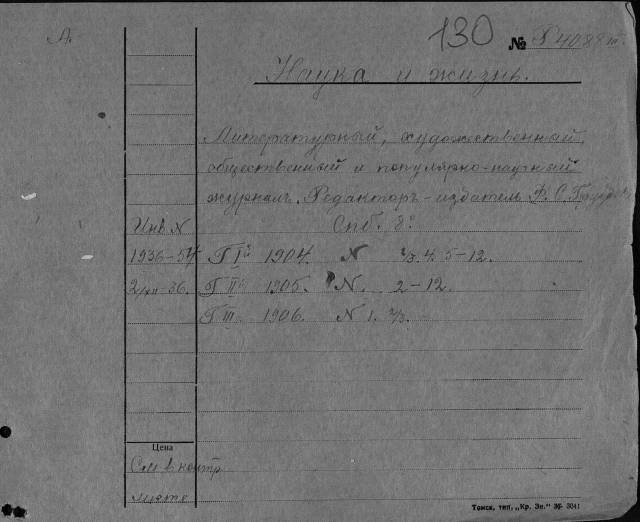 А.
130 № Р4088 III.
Наука и жизнь.
Литературный, художественный,
общественный и популярно-научный
журналъ. Редакторъ-издатель Ф. С.
Спб. 8°.
Инв. N
1936-54 Г I й 1904. N 2/3. 4. 5-12.
36. Г II й 1905. N. 2-12.
Г III. 1906. N 1. 2/3.
Цена
См в контр
листе
Томск, тип. „Кр. Зн.“ № 3041